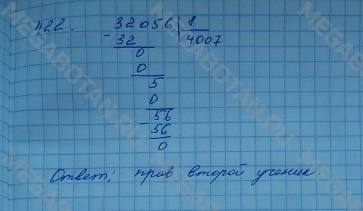 422. 32056 | 8
- 32 4007
0
0
5
0
56
- 56
0
Ответ: прав второй ученик.